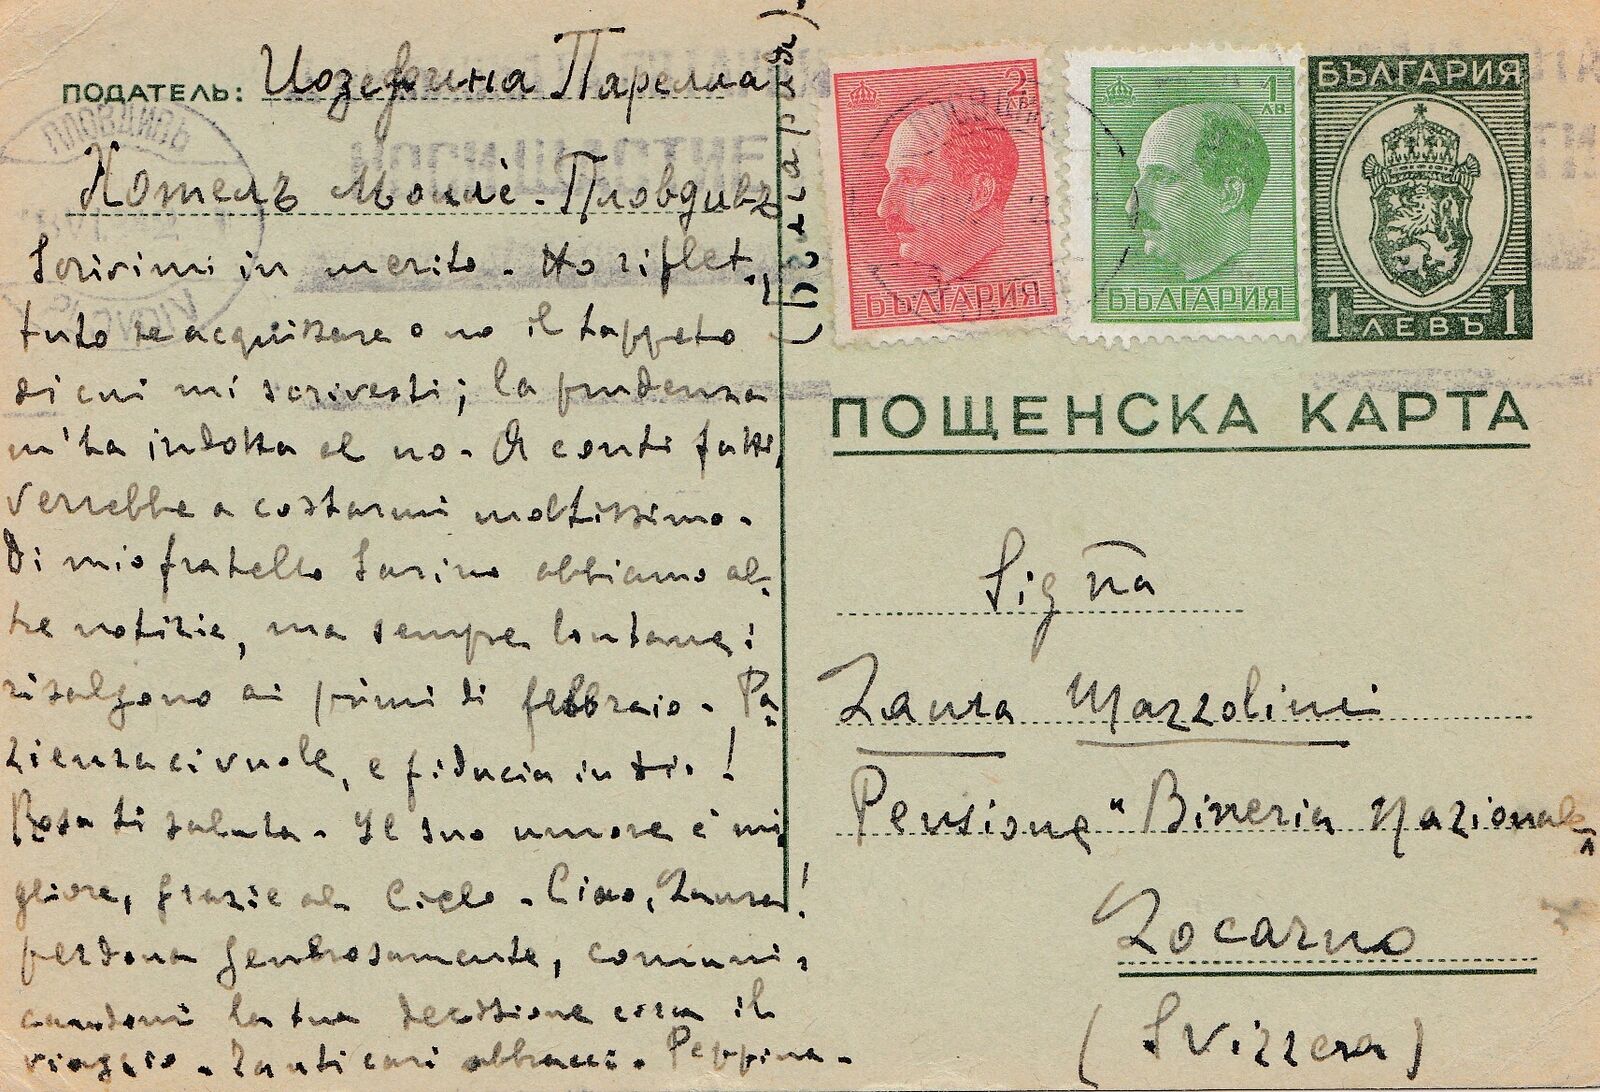 ПОДАТЕЛЬ: Иозефина Парелла
Хотелъ Моллѐ - Пловдивъ
(България)
Scrivimi in merito - Ho riflet-
tuto se acquistare o no il tappeto
di cui mi scrivesti; la prudenza
m'ha indotta al no - A conti fatti,
verrebbe a costarmi moltissimo -
Di mio fratello Sarino abbiamo al-
tre notizie, ma sempre lontane:
risalgono ai primi di febbraio - Pa-
zienza ci vuole, e fiducia in Dio!
Rosa ti saluta - Il suo umore è mi-
gliore, grazie al Cielo - Ciao, Laura!
perdona generosamente, comuni-
candomi la tua decisione circa il
viaggio - Tanti cari abbracci - Peppina -
2 ЛВ.
БЪЛГАРИЯ
1 ЛВ.
БЪЛГАРИЯ
БЪЛГАРИЯ
1 ЛЕВЪ 1
ПОЩЕНСКА КАРТА
Sig.na
Laura Mazzolini
Pensione "Birreria Nazionale"
Locarno
(Svizzera)
ПЛОВДИВЪ